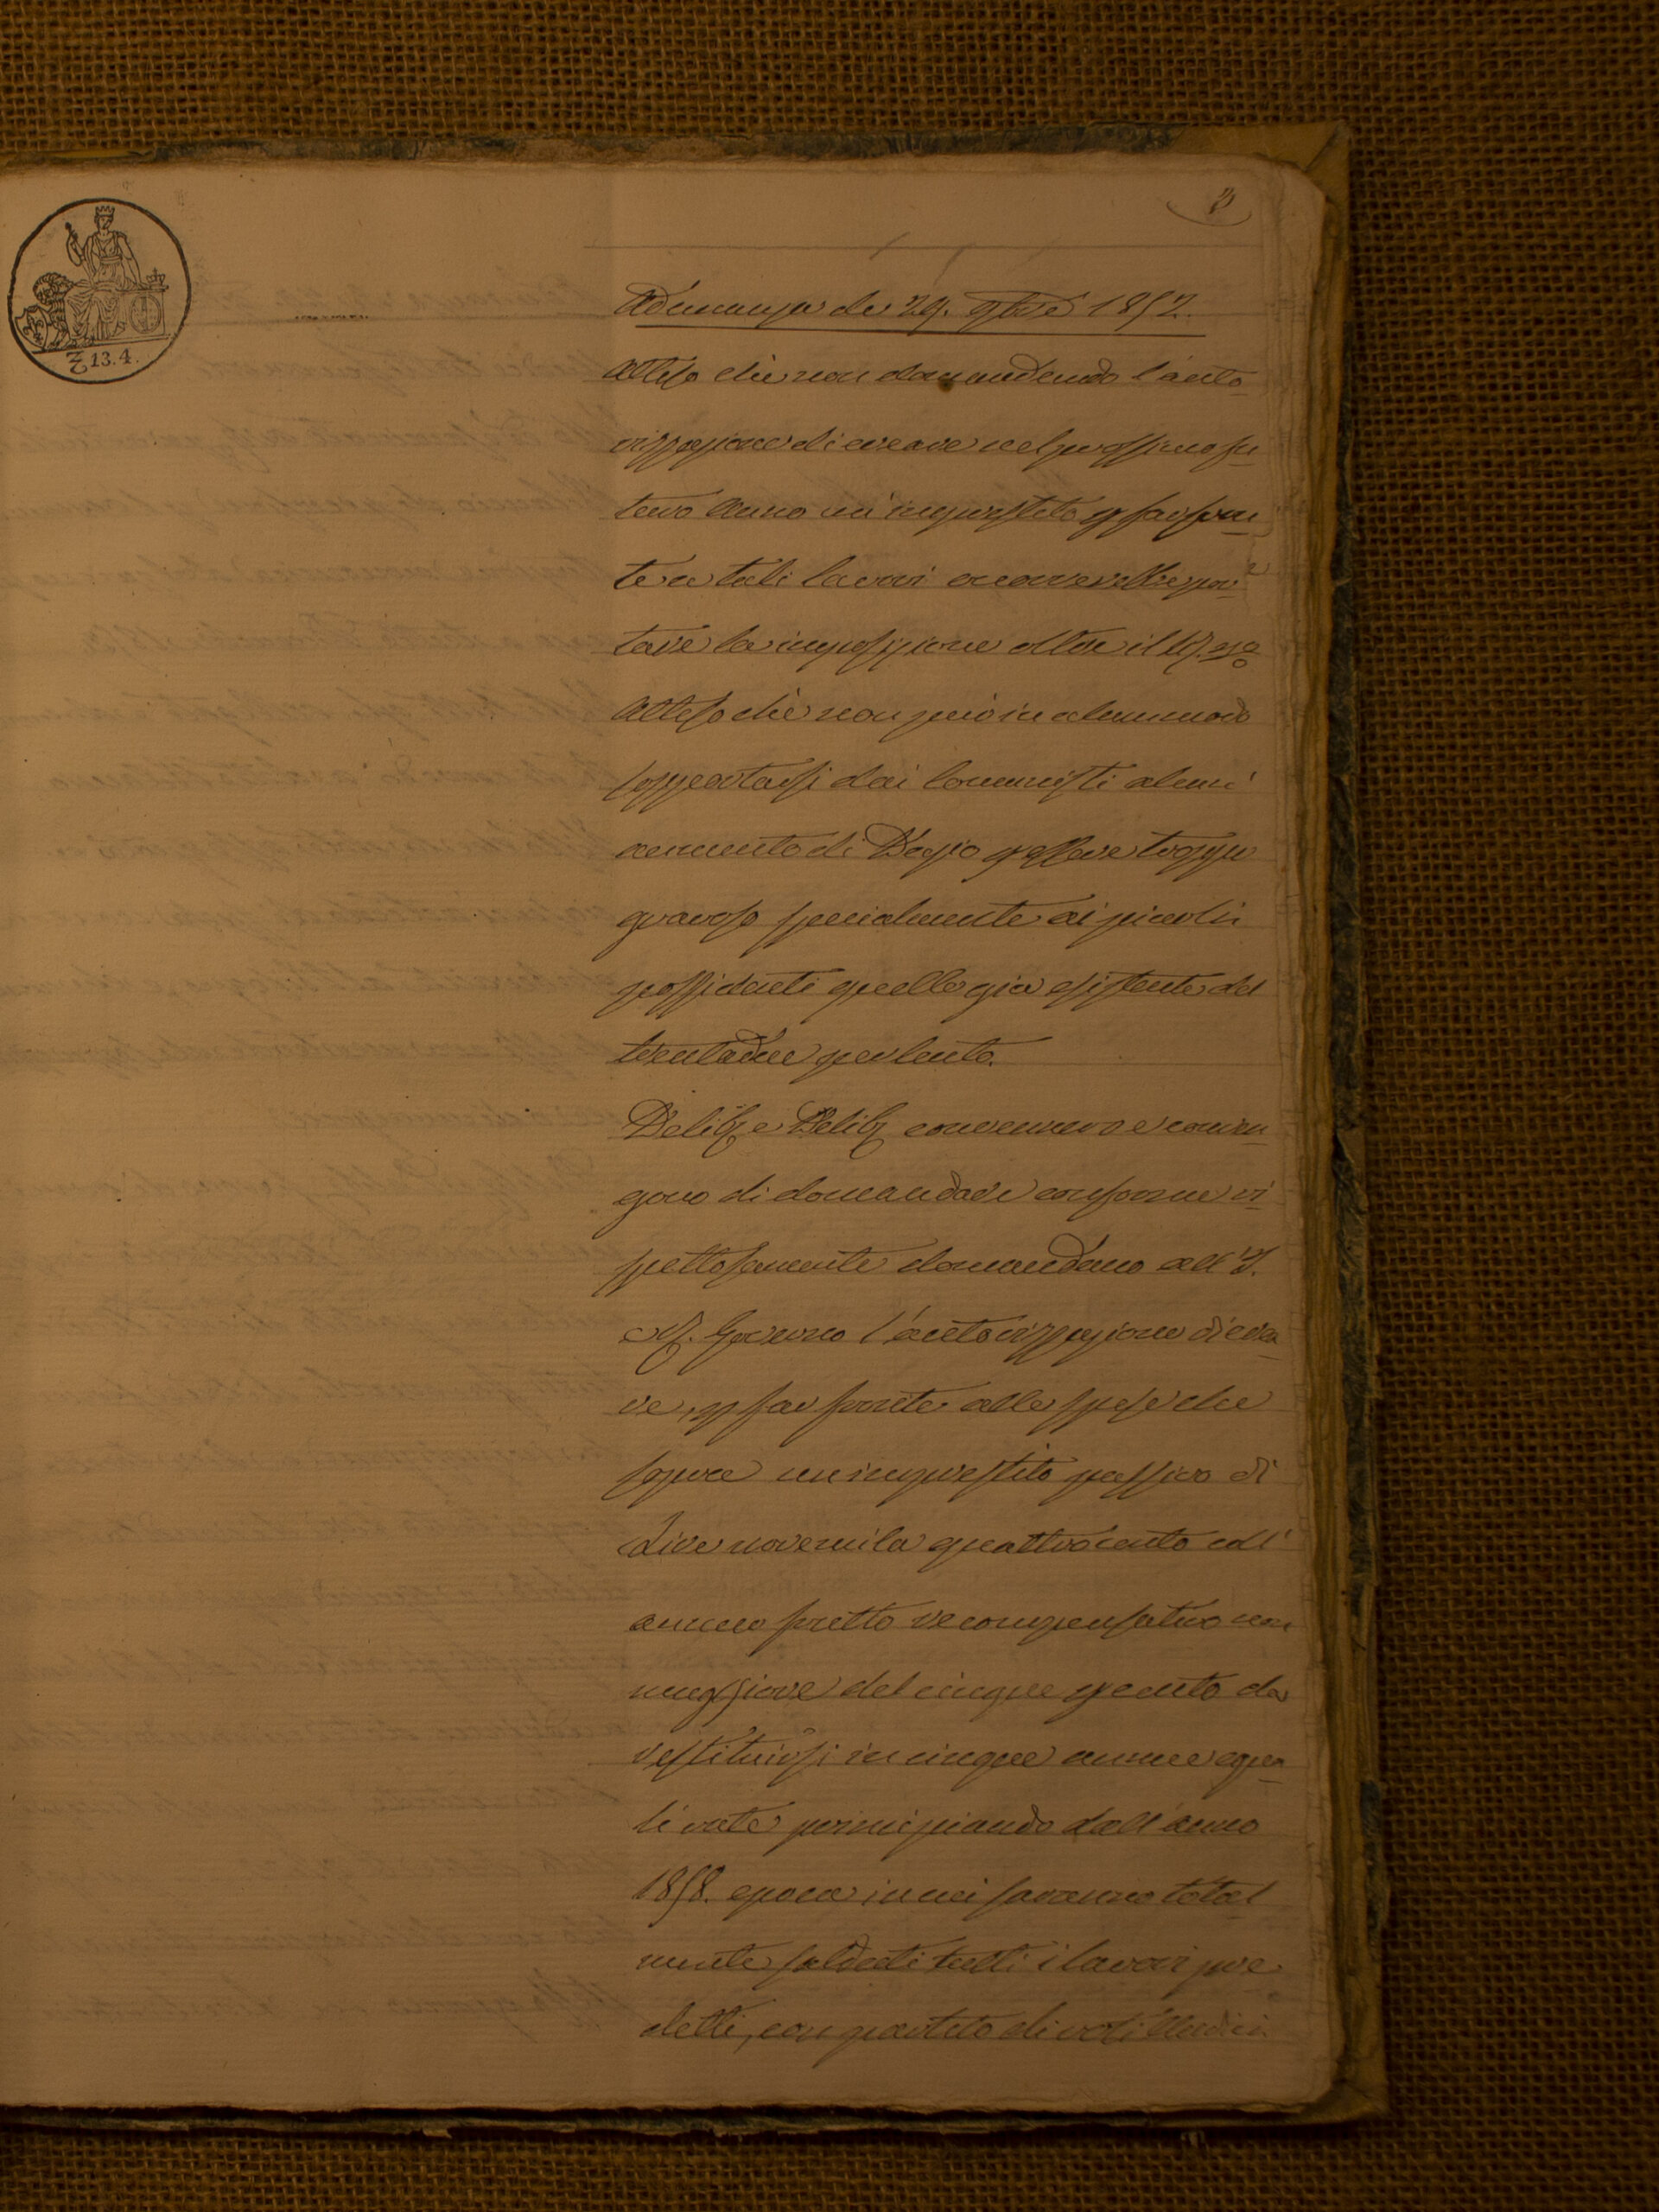 13.4.
Adunanza de 29. 9bre 1857.
Atteso che non domandando l'auto
rizzazione di creare nel prossimo fu
turo Anno un'imprestito p far fron
te a tali lavori occorrerebbe por
tare la imposizione oltre il
Atteso che non può in alcun modo
sopportarsi dai Comunisti alcun'
aumento di Dazio p essere troppo
gravoso specialmente ai piccoli
possidenti quello già esistente del
trentadue per Cento.
Delib e Delib convennero e conven
gono di domandare conforme ri
spettosamente domandano all'I.
e R. Governo l'autorizzazione di crea
re, p far fronte alle spese che
sopra un imprestito passivo di
Lire novemila quattrocento coll'
annuo frutto recompensativo non
maggiore del cinque p cento da
restituirsi in cinque annue egua
li rate principiando dall'anno
1858. epoca in cui saranno total
mente saldati tutti i lavori pre
detti, con partito di voti Undici.